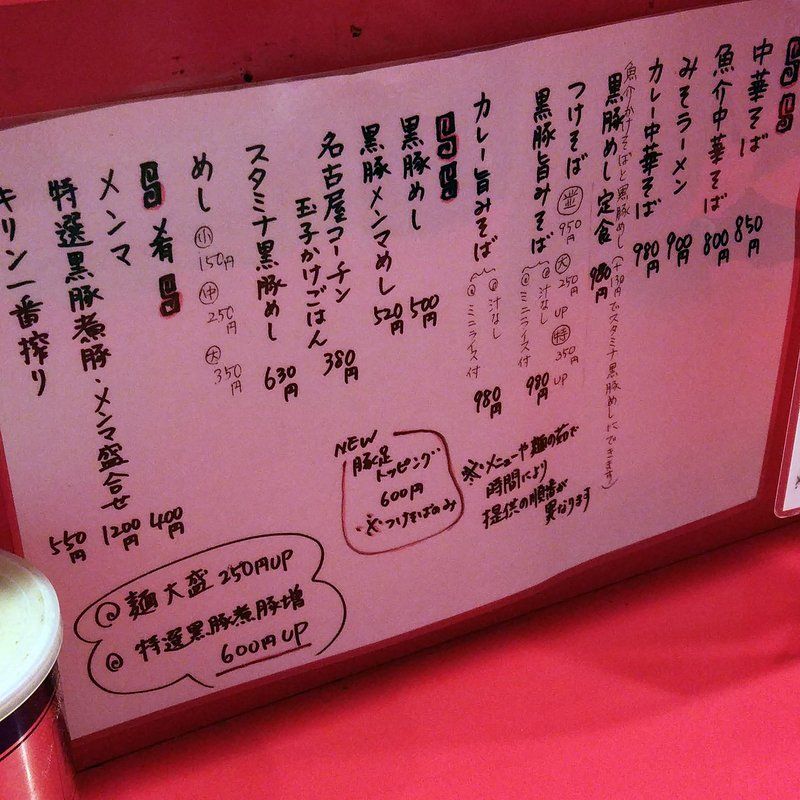 中華そば 850円
魚介中華そば 800円
みそラーメン 900円
カレー中華そば 980円
黒豚めし定食 980円
魚介かけそばと黒豚めし(+130円でスタミナ黒豚めしにできます)
つけそば 並 950円 大 250円UP 特 350円UP
黒豚旨みそば 980円
@汁なし
@ミニライス付
カレー旨みそば 980円
@汁なし
@ミニライス付
黒豚めし 500円
黒豚メンマめし 520円
名古屋コーチン
玉子かけごはん 380円
スタミナ黒豚めし 630円
めし 小 150円 中 250円 大 350円
肴
メンマ 400円
特選黒豚煮豚・メンマ盛合せ 1200円
キリン一番搾り 550円
NEW
豚足
トッピング
600円
※つけそばのみ
※メニューや麺の茹で
時間により
提供の順番が
異なります
@ 麺大盛 250円UP
@ 特選黒豚煮豚増
600円UP